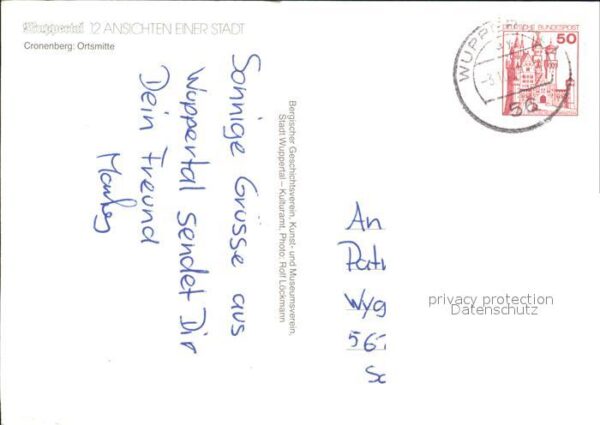 Wuppertal 12 ANSICHTEN EINER STADT
Cronenberg: Ortsmitte
Sonnige Grüsse aus
Wuppertal sendet Dir
Dein Freund
Bergischer Geschichtsverein, Kunst- und Museumsverein,
Stadt Wuppertal – Kulturamt, Photo: Rolf Löckmann
DEUTSCHE BUNDESPOST
50
WUPPER
56
An
Pat
Wyg
privacy protection
Datenschutz
56
Sc